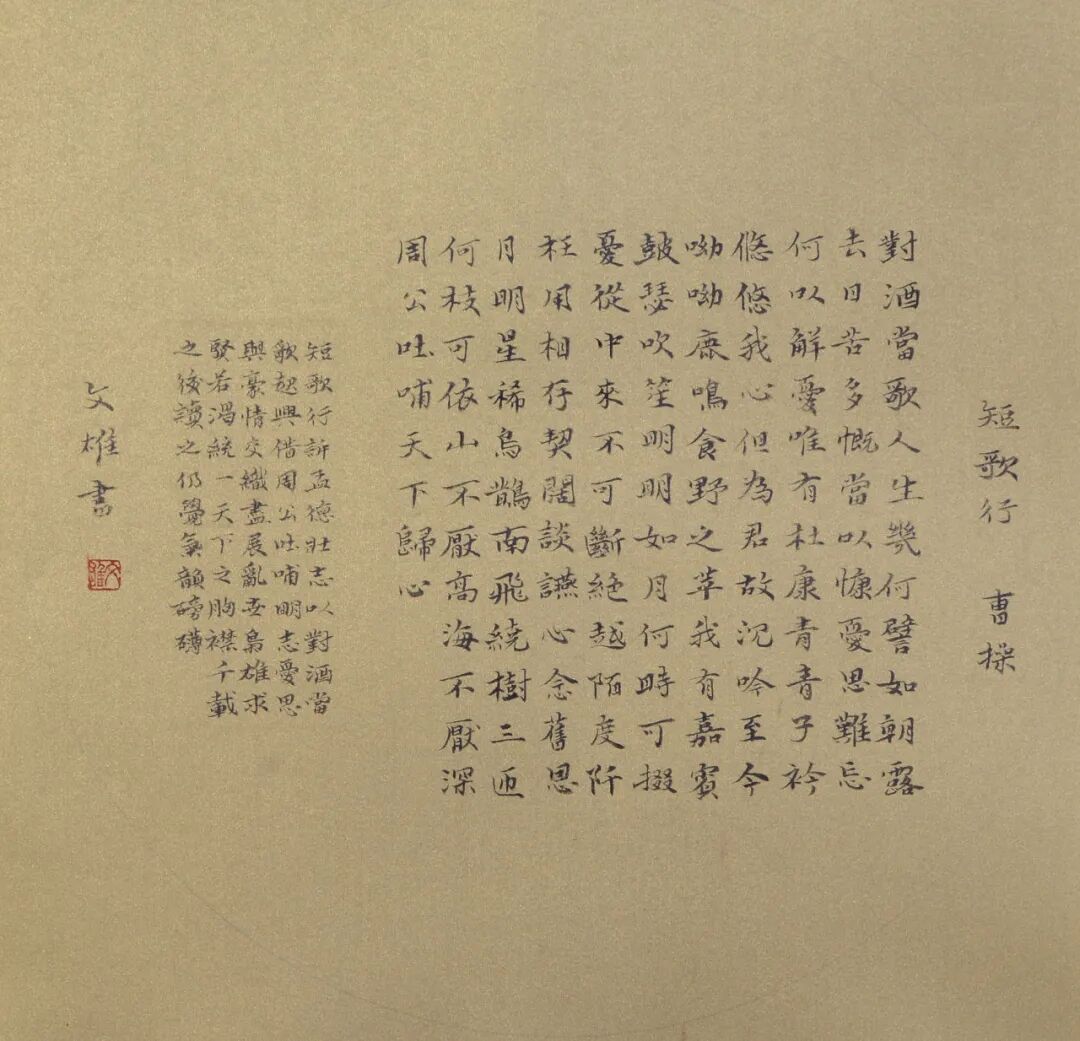 短歌行 曹操
對酒當歌人生幾何譬如朝露
去日苦多慨當以慷憂思難忘
何以解憂唯有杜康青青子衿
悠悠我心但為君故沉吟至今
呦呦鹿鳴食野之苹我有嘉賓
鼓瑟吹笙明明如月何時可掇
憂從中來不可斷絕越陌度阡
枉用相存契闊談讌心念舊恩
月明星稀烏鵲南飛繞樹三匝
何枝可依山不厭高海不厭深
周公吐哺天下歸心
短歌行訴孟德壯志以對酒當
歌起興借周公吐哺明志憂思
與豪情交織盡展亂世梟雄求
賢若渴統一天下之胸襟千載
之後讀之仍覺氣韻磅礴
文雄書
文雄